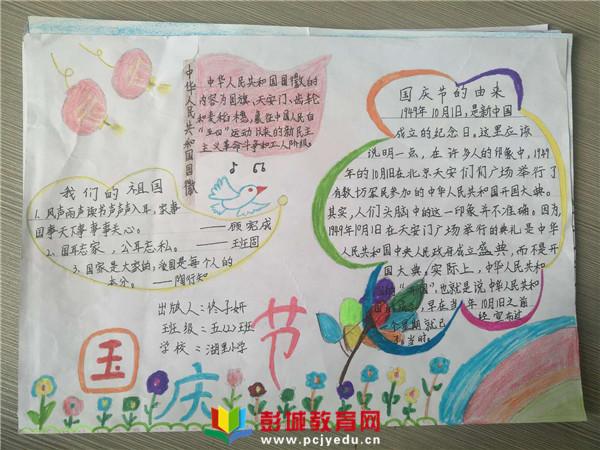 中华人民共和国国徽
中华人民共和国国徽的
内容为国旗、天安门、齿轮
和麦稻穗,象征中国人民自
“五四”运动以来的新民主
主义革命斗争和工人阶级。
我们的祖国
1. 风声雨声读书声声声入耳,家事
国事天下事事事关心。
——顾宪成
2. 国耳忘家,公耳忘私。
——班固
3. 国家是大家的,爱国是每个人的
本分。——陶行知
出版人:佟子妍
班级:五(2)班
学校:湖里小学
国庆节
国庆节的由来
1949年10月1日,是新中国
成立的纪念日。这里应该
说明一点,在许多人的印象中,1949
年的10月1日在北京天安门广场举行了
有数十万军民参加的中华人民共和国开国大典。
其实,人们头脑中的这一印象并不准确。因为
1949年10月1日在天安门广场举行的典礼是中华人
民共和国中央人民政府成立盛典,而不是开
国大典。实际上,中华人民共和
国的“开国”,也就是说中华人民共和
早在当年10月1日之前
一个星期就已经宣布过
不 当时。
彭城教育网
www.pcjyedu.cn